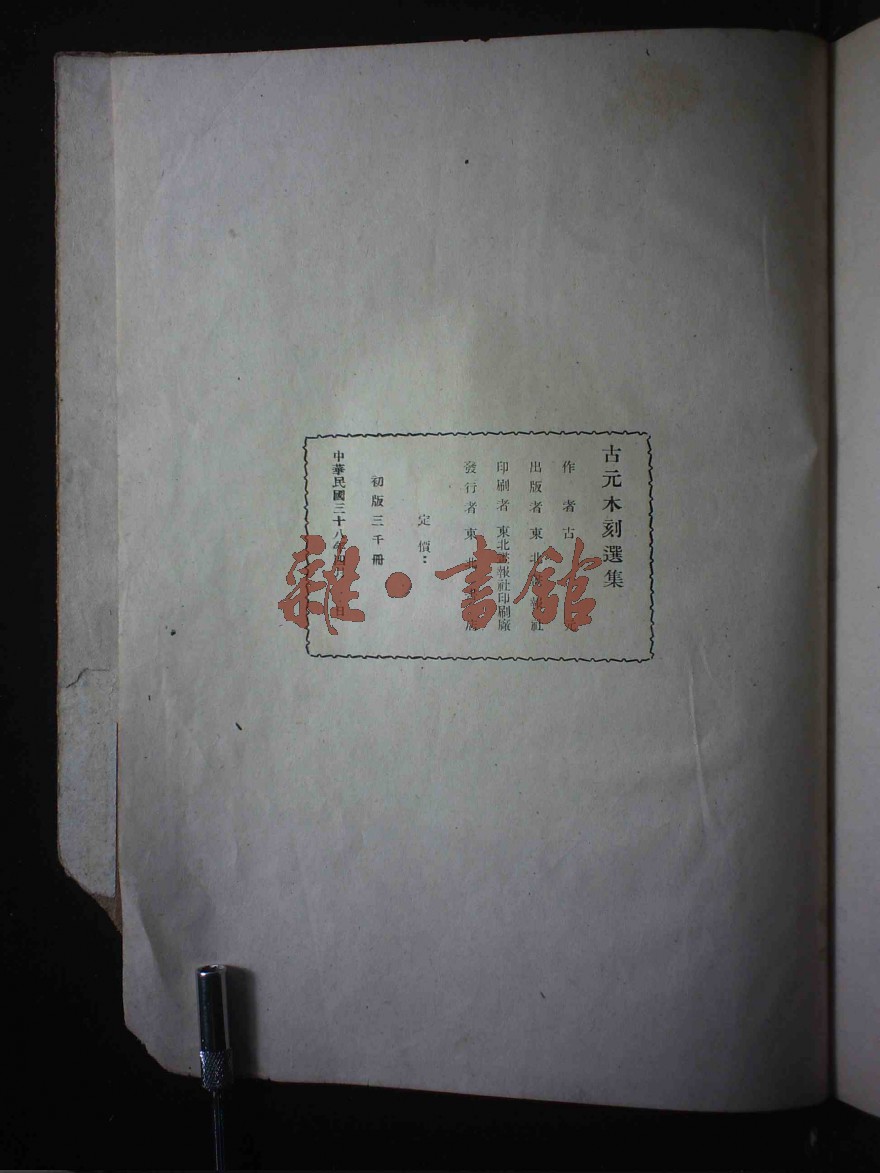 古元木刻選集
作者 古元
出版者 東北畫報社
印刷者 東北畫報社印刷廠
發行者 東北書店
定價：
初版三千冊
中華民國三十八年四月 日
雜·書館